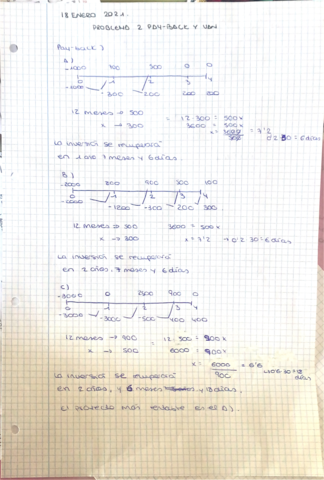 18 ENERO 2021.
PROBLEMA 2 PAY-BACK Y VAN
PAY-BACK)
A)
-1000 700 500 0 0
0 1 2 3 4
-1000 -300 200 200 200
12 meses → 500
x → 300
= 12·300 = 500x
3600 = 500x
x = 3600/500 = 7'2
0'2·30 = 6 días
La inversió se recuperará
en 1 año 7 meses y 6 días.
B)
-2000 800 700 500 100
0 1 2 3 4
-1200 -500 200 300
12 meses → 500
x → 300
3600 = 500x
x = 7'2 → 0'2·30 = 6 días
La inversió se recuperará
en 2 años, 7 meses y 6 días
C)
-3000 0 2500 900 0
0 1 2 3 4
-3000 -3000 -500 400 400
12 meses → 900
x → 500
= 12·500 = 900x
6000 = 900x
x = 6000/900 = 6'6
→ 0'6·30 = 18 días
La inversió se recuperará
en 2 años, y 6 meses y 18 días.
El proyecto más rentable es el A).